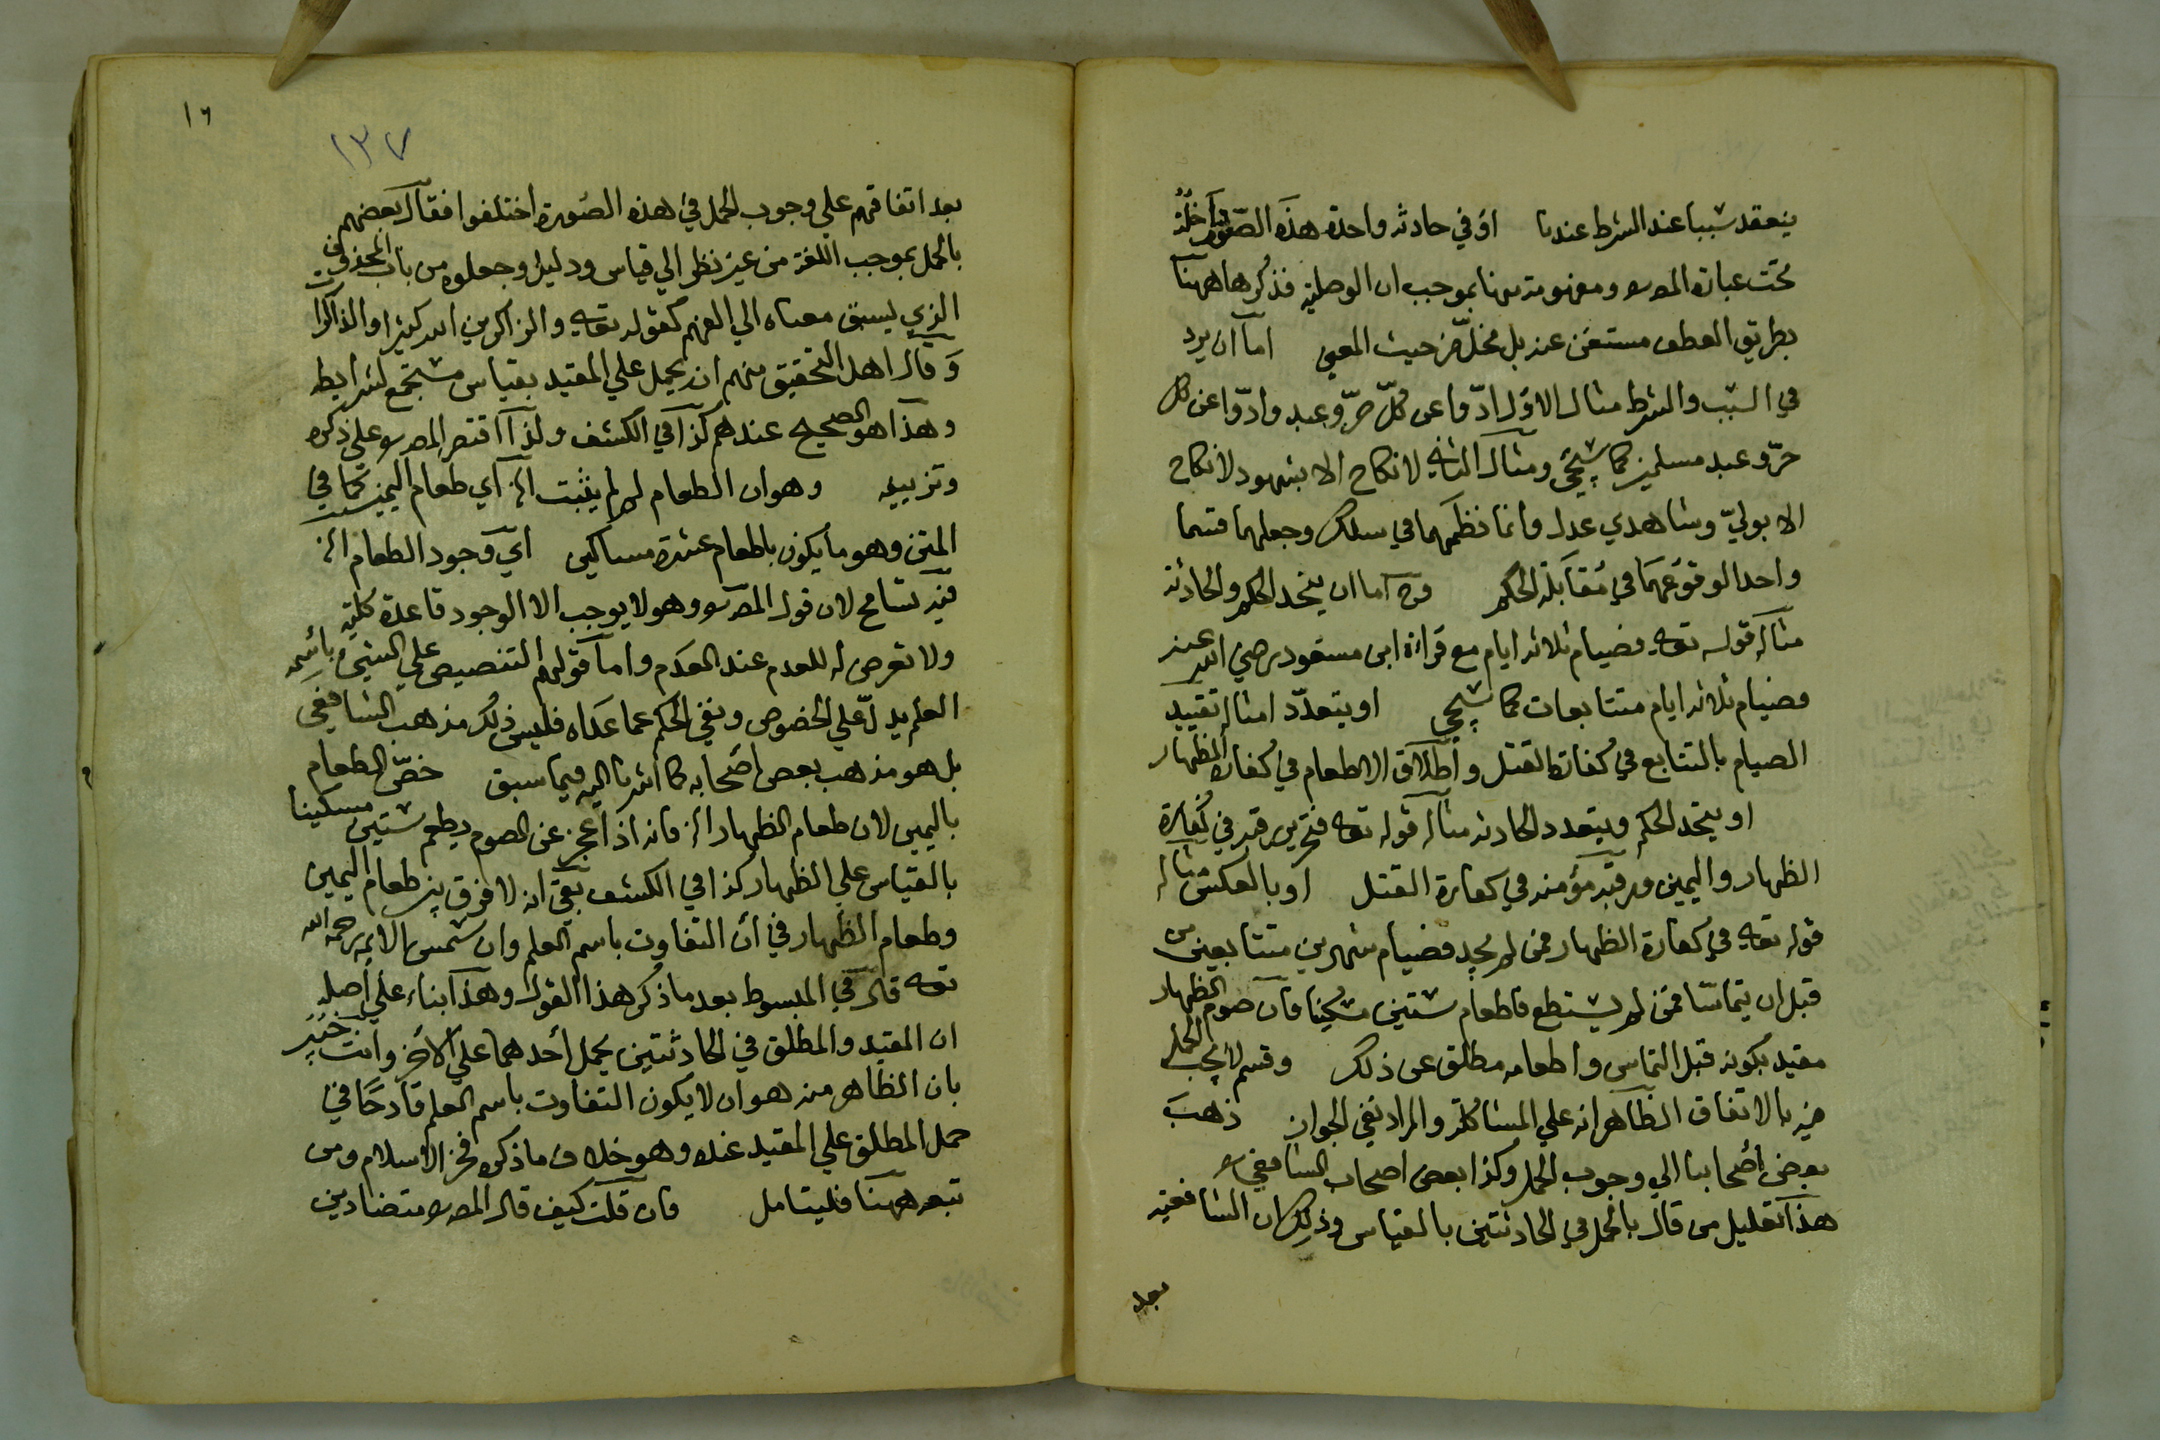 ينعقد سببا عند الشرط عندنا او في حادثة واحدة هذه الصورة داخلة
تحت عبارة المص ومفهومة منها بموجب ان الوصلية فذكرها ههنا
بطريق العطف مستغنى عنه بل مخل من حيث المعنى اما ان يرد
في السبب والشرط مثال الاول ادوا عن كل حر وعبد وادوا عن كل
حر وعبد مسلمين كما سيجئ ومثال الثاني لا نكاح الا بشهود لا نكاح
الا بولي وشاهدي عدل وانما نظمهما في سلك وجعلهما قسما
واحدا لوقوعهما في مقابلة الحكم وح اما ان يتحد الحكم والحادثة
مثاله قوله تعه فصيام ثلاثة ايام مع قراءة ابن مسعود رضي الله عنه
فصيام ثلاثة ايام متتابعات كما سيجي او يتعدد امثاله تقييد
الصيام بالتتابع في كفارة القتل واطلاق الاطعام في كفارة الظهار
او يتحد الحكم ويتعدد الحادثة مثاله قوله تعه فتحرير رقبة في كفارة
الظهار واليمين ورقبة مؤمنة في كفارة القتل او بالعكس مثاله
قوله تعه في كفارة الظهار فمن لم يجد فصيام شهرين متتابعين من
قبل ان يتماسا فمن لم يستطع فاطعام ستين مسكينا فان صوم الظهار
مقيد بكونه قبل التماس واطعامه مطلق عن ذلك وقسم لا يجب الحمل
فيه بالاتفاق الظاهر انه علي المشاكلة والمراد نفي الجواز ذهب
بعض اصحابنا الي وجوب الحمل وكذا بعض اصحاب الشافعي
هذا تعليل من قال بالحمل في الحادثتين بالقياس وذلك ان الشافعية
بعد
١٦
١٣٧
بعد اتفاقهم علي وجوب الحمل في هذه الصورة اختلفوا فقال بعضهم
بالحمل بموجب اللغة من غير نظر الي قياس ودليل وجعلوه من باب المحذوف
الذي يسبق معناه الي الفهم كقوله تعه والذاكرين الله كثيرا والذاكرات
وقال اهل التحقيق منهم انه يحمل علي المقيد بقياس مستجمع لشرايطه
وهذا هو الصحيح عندهم كذا في الكشف ولذا اقتصر المص على ذكره
وتزييفه وهو ان الطعام لم يثبت الخ اي طعام اليمين كما في
المتن وهو ما يكون باطعام عشرة مساكين اي وجود الطعام الخ
فيه تسامح لان قول المص وهو لا يوجب الا الوجود قاعدة كلية
ولا تعرض له للعدم عند العدم واما قولهم التنصيص علي الشئ باسمه
العلم يدل علي الخصوص ونفي الحكم عما عداه فليس ذلك مذهب الشافعي
بل هو مذهب بعض اصحابه كما اشرنا اليه فيما سبق خص الطعام
باليمين لان طعام الظهار الخ فانه اذا عجز عن الصوم يطعم ستين مسكينا
بالقياس علي الظهار كذا في الكشف بقي انه لا فرق بين طعام اليمين
وطعام الظهار في ان التفاوت باسم العلم وان شمس الائمة رحمه الله
تعه قال في المبسوط بعد ما ذكر هذا القول وهذا بناء علي اصله
ان المقيد والمطلق في الحادثتين يحمل احدهما علي الاخر وانت خبير
بان الظاهر منه هو ان لا يكون التفاوت باسم العلم قادحا في
حمل المطلق علي المقيد عنده وهو خلاف ما ذكره فخر الاسلام ومن
تبعه ههنا فليتامل فان قلت كيف قال المص متضادين